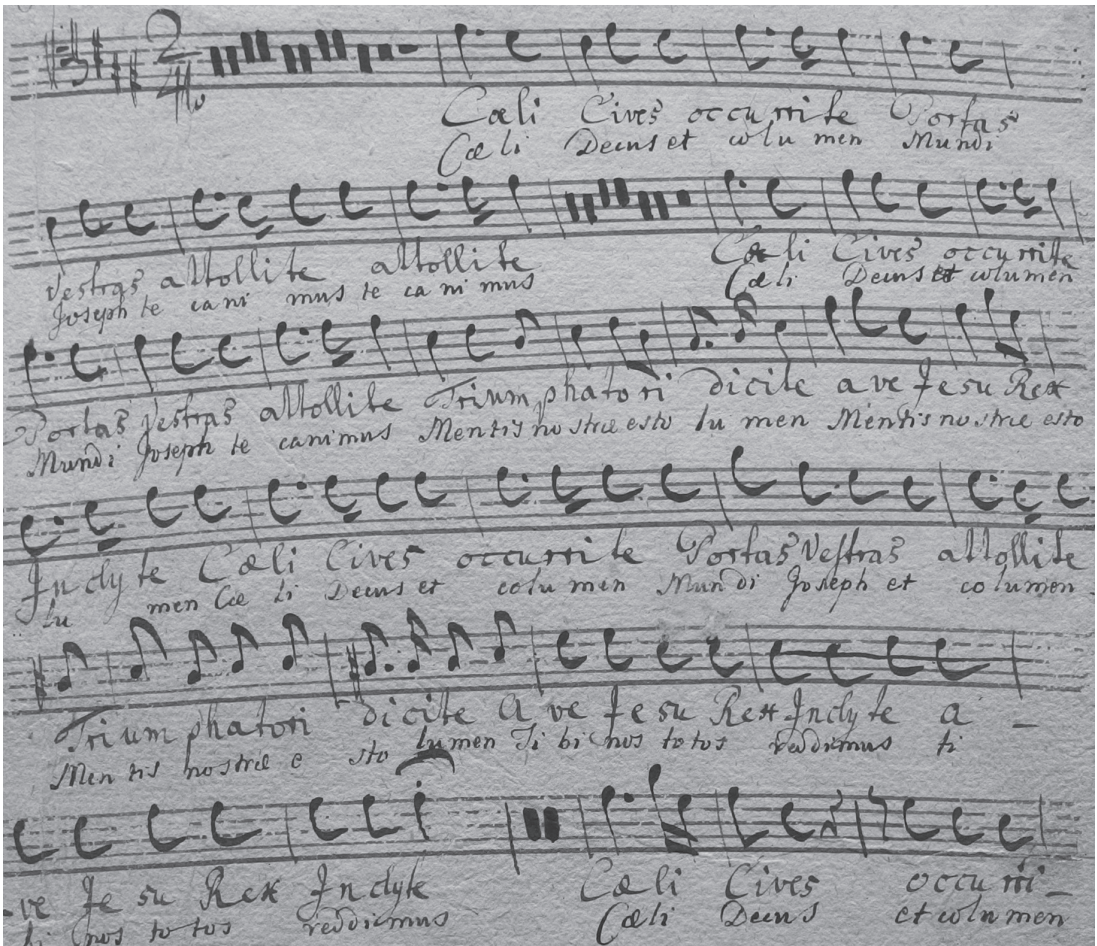 2/4
Cœli Cives occurrite Portas
Cœli Decus et colu men Mundi
Vestras attollite attollite Cœli Cives occurrite
Joseph te cani mus te ca ni mus Cœli Decus et columen
Portas Vestras attollite Trium phatori dicite a ve Jesu Rex
Mundi Joseph te canimus Mentis nostræ esto lu men Mentis nostræ esto
Jn cly te Cœli Cives occurri te Portas Vestras attollite
lu men Cœ li Decus et colu men Mun di Joseph et co lumen
Tri um phatori dicite A ve Je su Rex Jnclyte a -
Men tis nostræ e sto lumen Ti bi nos totos reddimus ti
-ve Je su Rex Jn clyte Cœli Cives occu rri-
bi nos to tos reddimus Cœli Decus et colu men